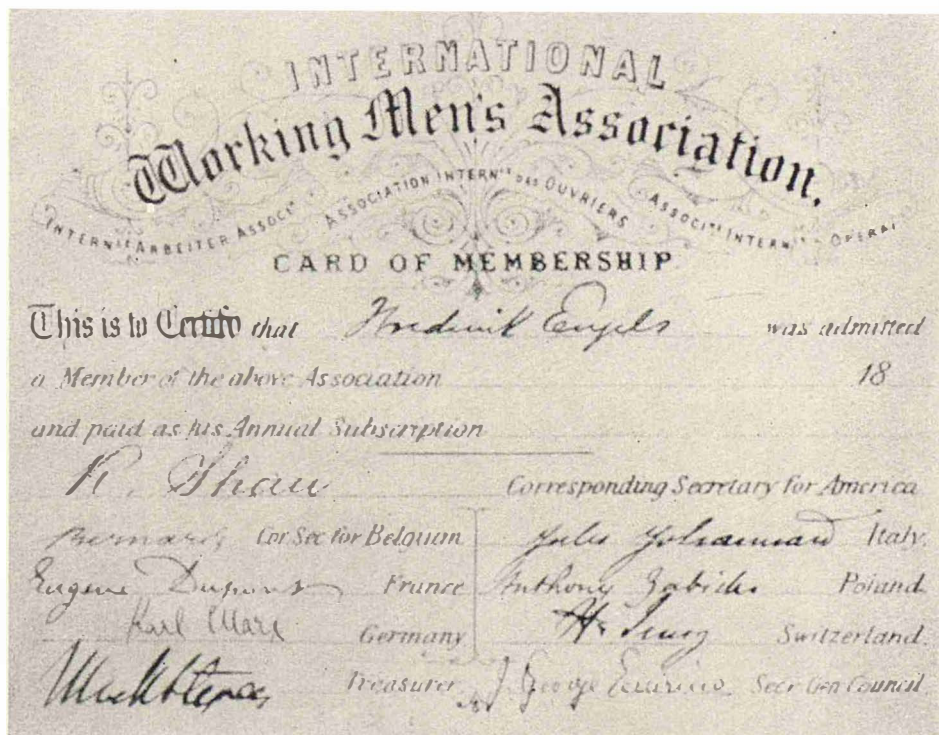 INTERNATIONAL
Working Men's Association.
INTERN^LE ARBEITER ASSOC^N ASSOCIATION INTERN^LE DES OUVRIERS ASSOCI^NE INTERN^LE OPERAI
CARD OF MEMBERSHIP
This is to Certify that Frederick Engels was admitted
a Member of the above Association 18
and paid as his Annual Subscription
R. Shaw Corresponding Secretary for America
Bernard Cor Sec for Belgium Jules Johannard Italy.
Eugene Dupont France Anthony Zabicki Poland.
Karl Marx Germany H. Jung Switzerland.
Treasurer J. George Eccarius Secr Gen Council